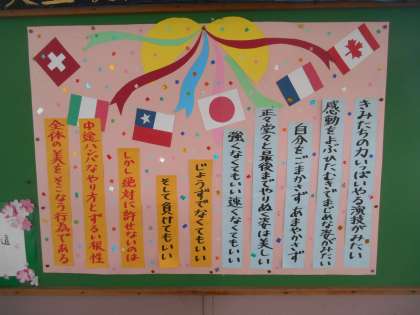 きみたちの力いっぱいやる演技がみたい
感動をよぶひたむきでまじめな姿がみたい
自分をごまかさず あまやかさず
正々堂々と最後までやりぬく姿は美しい
強くなくてもいい 速くなくてもいい
じょうずでなくてもいい
そして負けてもいい
しかし絶対に許せないのは
中途ハンパなやり方とずるい根性
全体の美をそこなう行為である
道